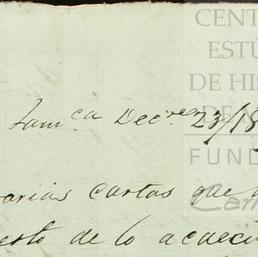 CENT
ESTU
DE HIS
DE
FUND
Jam.ca Dec.re 23/18
varias cartas que
esto de lo acaeci